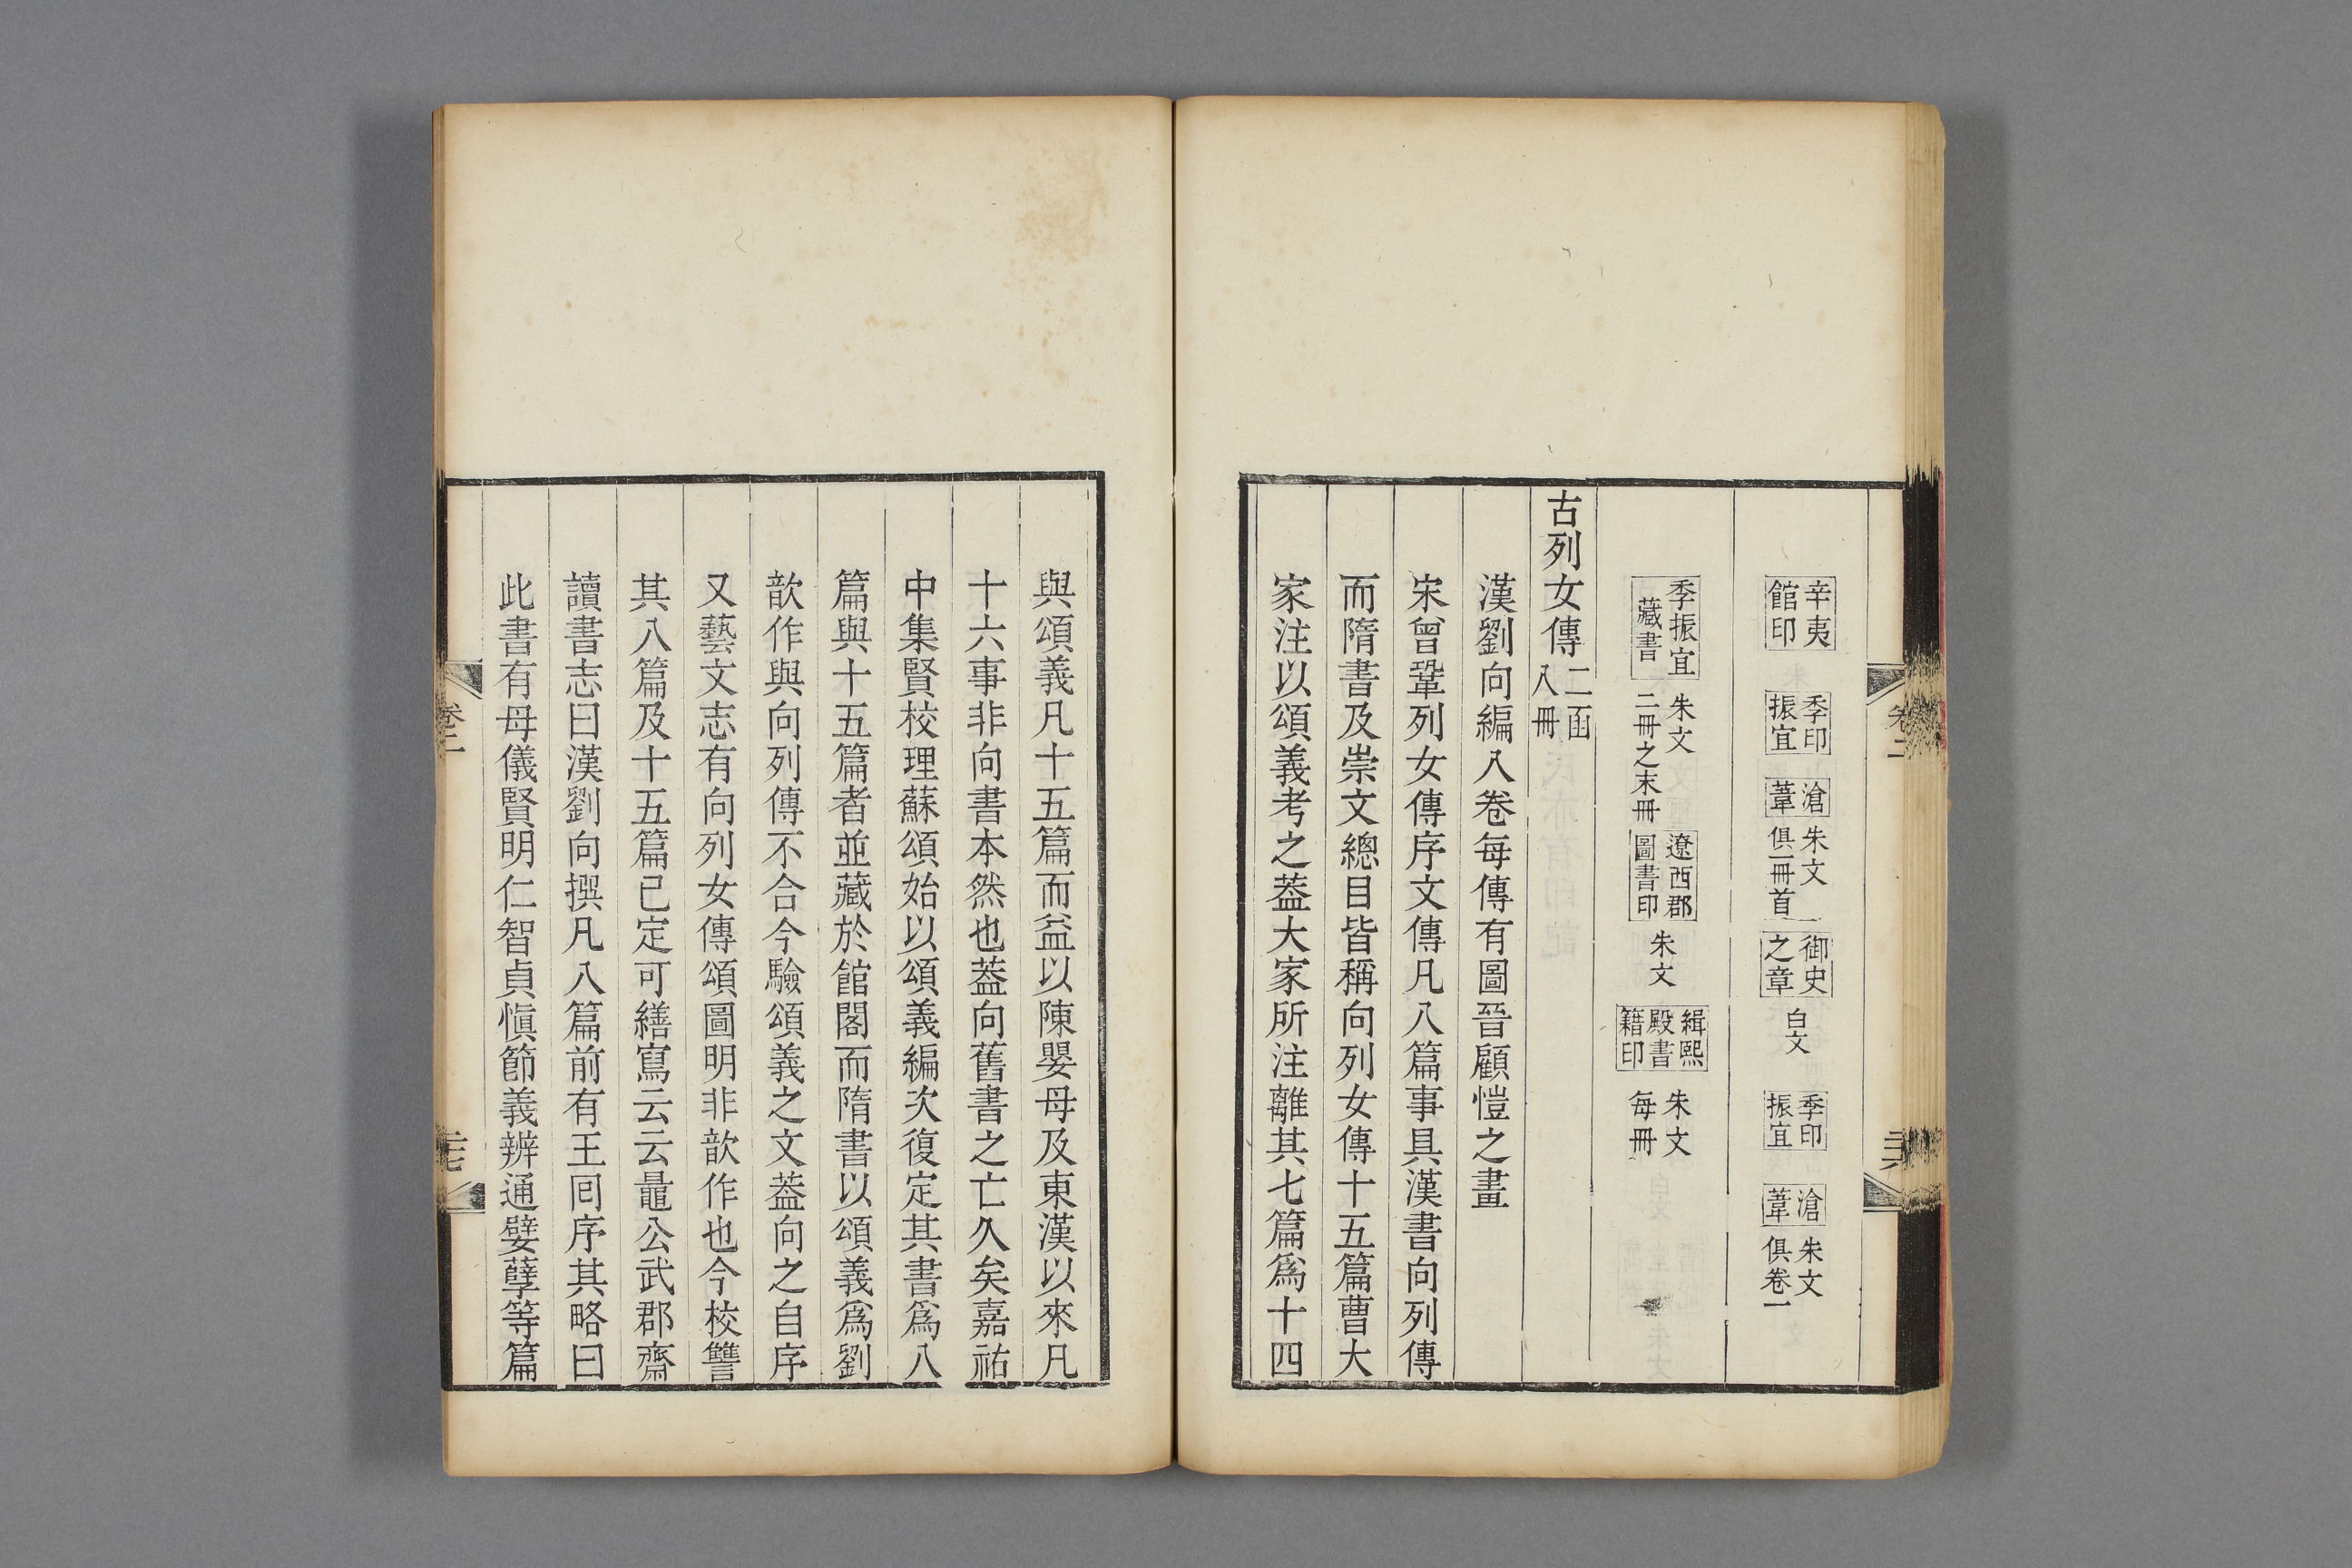 辛夷館印 季印振宜 滄葦 朱文俱一冊首 御史之章 白文 季印振宜 滄葦 朱文俱卷一
季振宜藏書 朱文二冊之末冊 遼西郡圖書印 朱文 緝熙殿書籍印 朱文每冊
古列女傳 二函八冊
漢劉向編八卷每傳有圖晉顧愷之畫
宋曾鞏列女傳序文傳凡八篇事具漢書向列傳
而隋書及崇文總目皆稱向列女傳十五篇曹大
家注以頌義考之葢大家所注離其七篇爲十四
與頌義凡十五篇而益以陳嬰母及東漢以來凡
十六事非向書本然也葢向舊書之亡久矣嘉祐
中集賢校理蘇頌始以頌義編次復定其書爲八
篇與十五篇者並藏於館閣而隋書以頌義爲劉
歆作與向列傳不合今驗頌義之文葢向之自序
又藝文志有向列女傳頌圖明非歆作也今校讐
其八篇及十五篇已定可繕寫云云鼂公武郡齋
讀書志曰漢劉向撰凡八篇前有王囘序其略曰
此書有母儀賢明仁智貞愼節義辨通嬖孽等篇
卷二